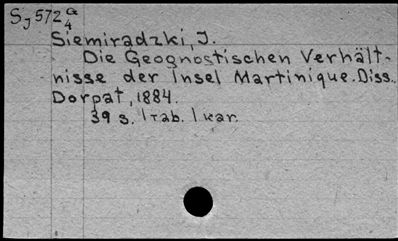 S, 572 G 4
Siemiradzki, J.
Die Geognostischen Verhält-
nisse der Insel Martinique. Diss.
Dorpat, 1884.
39 s. 1 Tab. 1 kar.